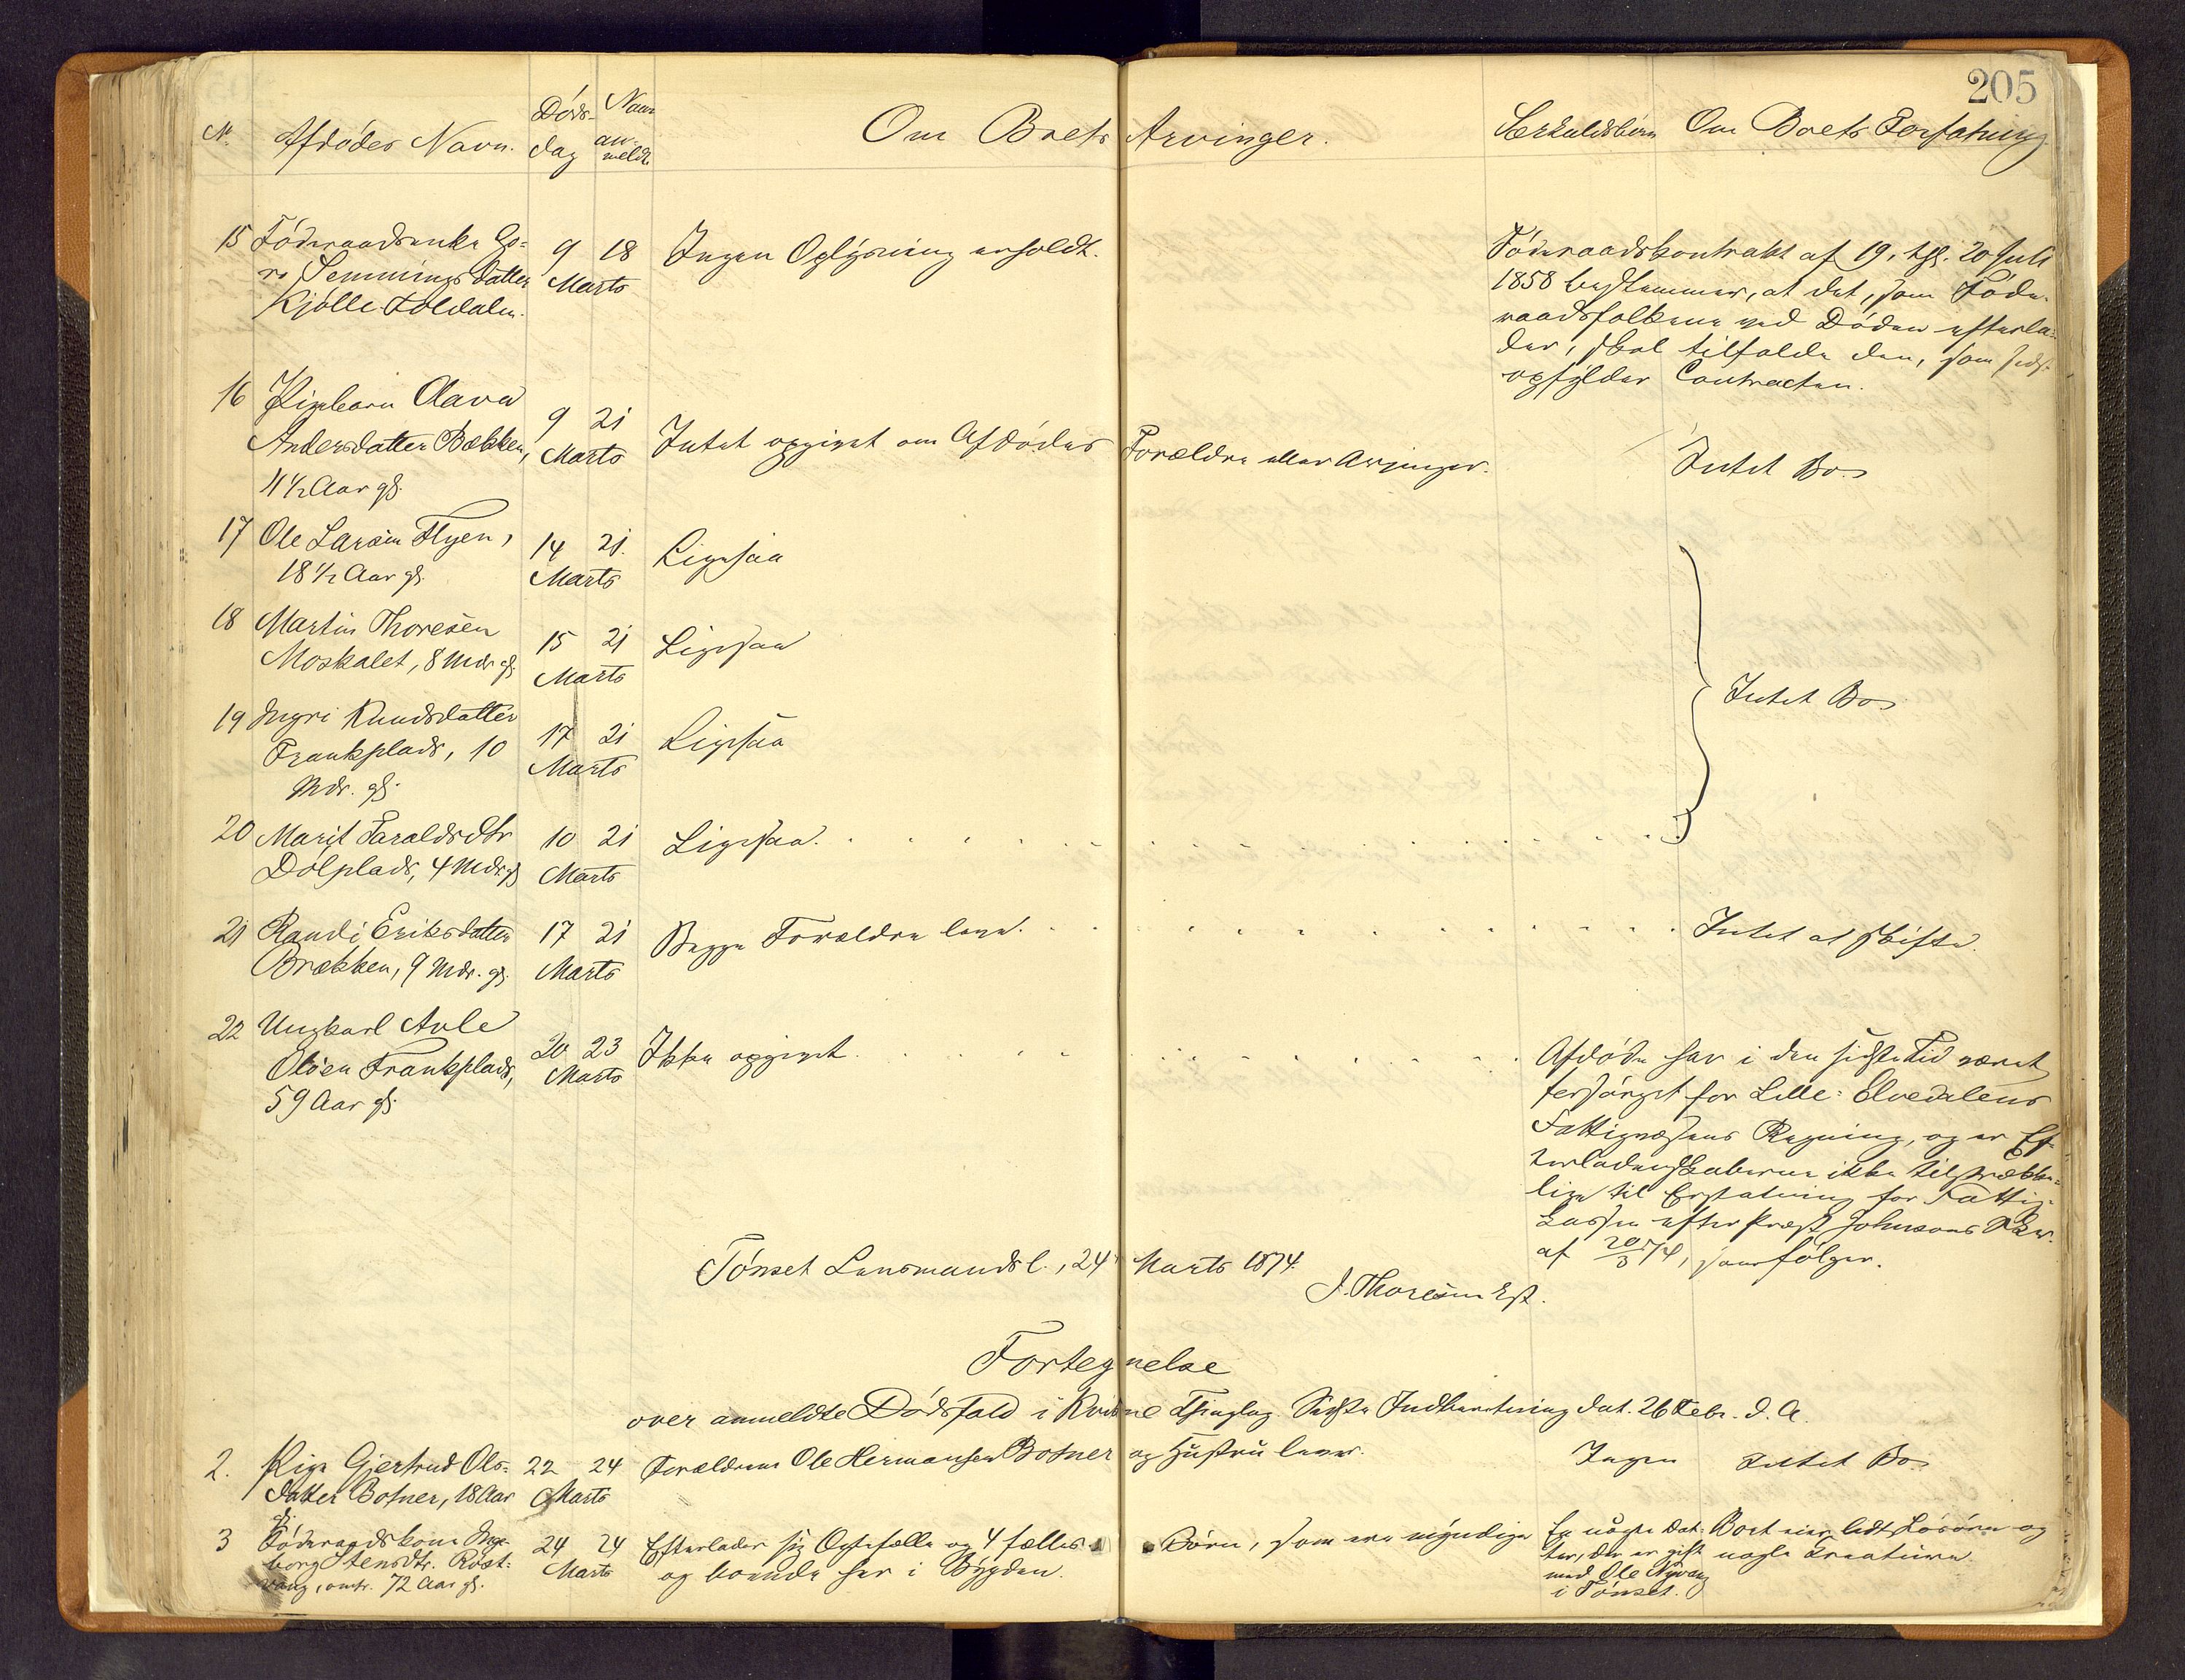 205
No. Afdødes Navn. Døds- dag Naar an- meldt Om Boets Arvinger. Særkuldsbørn Om Boets Forfatning
15 Föderaadsenke Go-
ro Semmingsdatter
Kjölle Foldalen.
9 18
Marts
Ingen Oplÿsning erholdt.
Föderaadskontrakt af 19, tgl. 20 Juli
1858 bestemmer, at det, som Föde-
raadsfolkene ved Döden efterla-
der, skal tilfalde den, som sidst
opfÿlder Contracten.
16 Pigebarn Olava
Andersdatter Bækken,
4½ Aar gl.
9 21
Marts
Intet opgivet om Afdödes Forældre eller Arvinger.
Intet Bo
17 Ole Larsen Flyen,
18½ Aar gl.
14 21.
Marts
Ligesaa
18 Martin Thoresen
Moskalet, 8 Mdr gl.
15 21
Marts
Ligesaa
19 Ingri Knudsdatter
Frankplads, 10
Mdr. gl.
17 21
Marts
Ligesaa
Intet Bo
20 Marit Taraldsdtr
Dölplads, 4 Mdr gl
10 21
Marts
Ligesaa.
21 Randi Eriksdatter
Brækken, 9 Mdr. gl.
17 21
Marts
Begge Forældre lever.
Intet at skifte.
22 Ungkarl Avle
Olsen Frankplads,
59 Aar gl.
20 23
Marts
Ikke opgivet.
Afdöde har i den sidste Tid været
forsörget for Lille-Elvedalens
Fattigvæsens Regning, og er Ef-
terladenskaberne ikke tilstrække-
lige til Erstatning for Fattig-
kassen efter Præst Johnsons Skr.
af 20/3 74, som følger.
Tönset Lensmandsb., 24 Marts 1874.
J. Thoresen Est.
Fortegnelse
over anmeldte Dödsfald i Kvikne Thinglag. Sidste Indberetning dat. 26 Febr. d. A.
2. Pige Gjertrud Ols-
datter Botner, 18 Aar
gl.
22 24
Marts
Forældrene Ole Hermansen Botner og Hustru lever.
Ingen
Intet Bo
3 Föderaadskone Inge-
borg Stensdtr. Röst-
vang, omtr. 72 Aar gl.
24 24
Marts
Efterlader sig Ægtefælle og 4 fælles Börn, som ere mÿndige
og boende her i Bÿgden.
En uægte Dat-
ter, der er gift
med Ole Nÿvang
i Tönset.
Boet eier lidt Lösöre og
nogle Kreaturer.